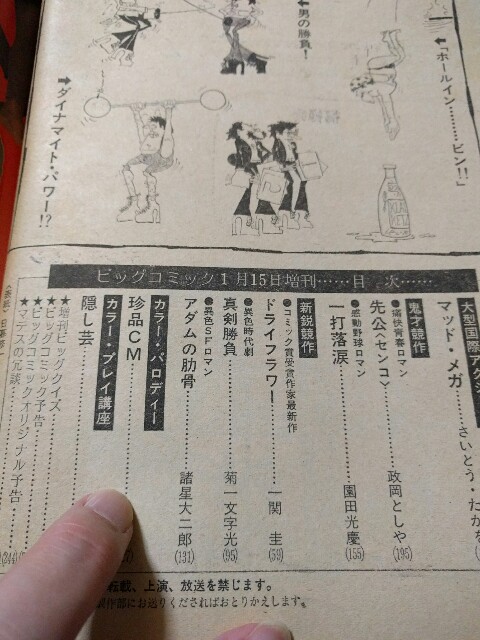 ←男の勝負！
←「ホールイン………ビン!!」
➡ダイナマイト・パワー!?
ビッグコミック1月15日増刊……目 次……
大型国際アク
マッド・メガ………さいとう・たか
鬼才競作
●痛快青春ロマン
先公〈センコ〉………政岡としや(195)
●感動野球ロマン
一打落涙………園田光慶(155)
新鋭競作
●コミック賞受賞作家最新作
ドライフラワー………一関 圭(59)
●異色時代劇
真剣勝負………菊一文字光(95)
●異色SFロマン
アダムの肋骨………諸星大二郎(131)
カラー・パロディー
珍品CM………
カラー・プレイ講座
隠し芸………
★増刊ビッグクイズ………
★ビッグコミック予告………
★ビッグコミックオリジナル予告………
★マデスの冗談………(244)
転載、上演、放送を禁じます。
製作部にお送りくださればおとりかえします。